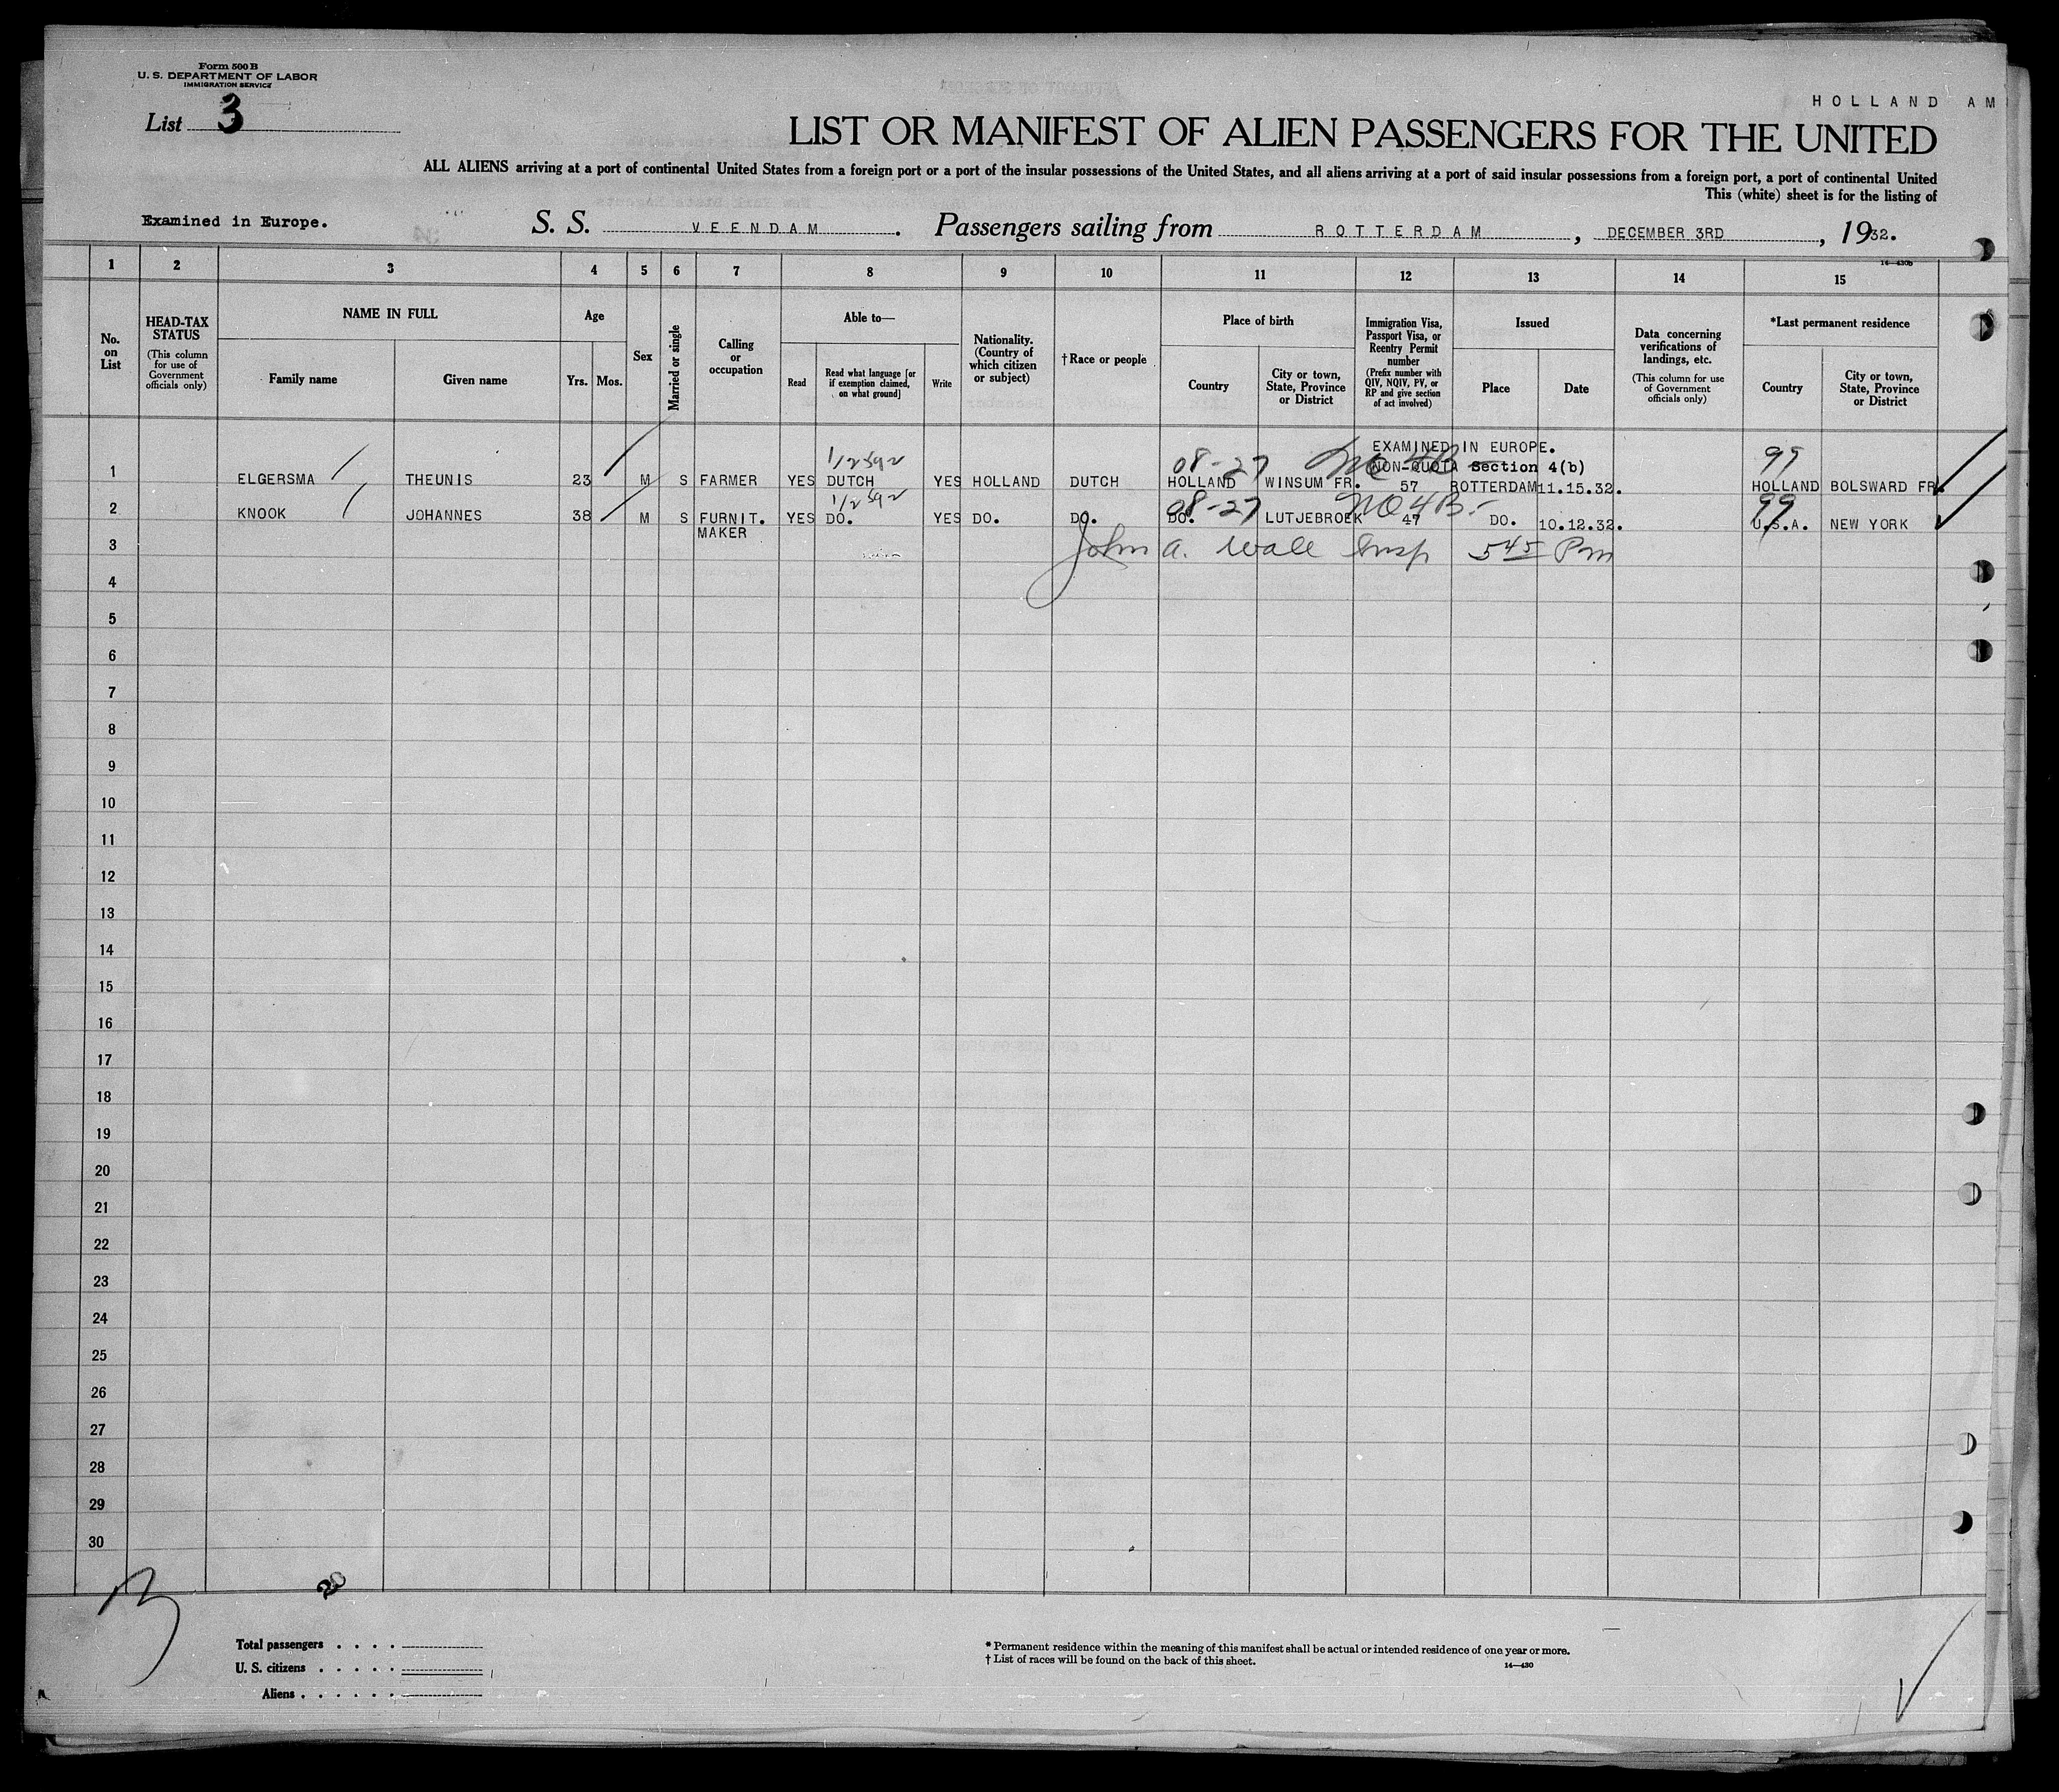 Form 500 B
U. S. DEPARTMENT OF LABOR
IMMIGRATION SERVICE
List 3
HOLLAND AM
LIST OR MANIFEST OF ALIEN PASSENGERS FOR THE UNITED
ALL ALIENS arriving at a port of continental United States from a foreign port or a port of the insular possessions of the United States, and all aliens arriving at a port of said insular possessions from a foreign port, a port of continental United
This (white) sheet is for the listing of
Examined in Europe.
S. S. VEENDAM. Passengers sailing from ROTTERDAM, DECEMBER 3RD, 1932.
14—430b
1 2 3 4 5 6 7 8 9 10 11 12 13 14 15
No. on List
HEAD-TAX STATUS (This column for use of Government officials only)
NAME IN FULL
Family name
Given name
Age
Yrs.
Mos.
Sex
Married or single
Calling or occupation
Able to—
Read
Read what language [or if exemption claimed, on what ground]
Write
Nationality. (Country of which citizen or subject)
†Race or people
Place of birth
Country
City or town, State, Province or District
Immigration Visa, Passport Visa, or Reentry Permit number (Prefix number with QIV, NQIV, PV, or RP and give section of act involved)
Issued
Place
Date
Data concerning verifications of landings, etc. (This column for use of Government officials only)
*Last permanent residence
Country
City or town, State, Province or District
EXAMINED IN EUROPE.
08-27 99
NON-QUOTA Section 4(b)
1 ELGERSMA THEUNIS 23 M S FARMER YES DUTCH YES HOLLAND DUTCH HOLLAND WINSUM FR. 57 ROTTERDAM 11.15.32. HOLLAND BOLSWARD FR.
08-27 NO 4B.- 99
2 KNOOK JOHANNES 38 M S FURNIT. MAKER YES DO. YES DO. DO. DO. LUTJEBROEK 47 DO. 10.12.32. U.S.A. NEW YORK
3 John A. Wall Insp 5 45 Pm
4
5
6
7
8
9
10
11
12
13
14
15
16
17
18
19
20
21
22
23
24
25
26
27
28
29
30
20
Total passengers . . . .
U. S. citizens . . . . .
Aliens . . . . . .
* Permanent residence within the meaning of this manifest shall be actual or intended residence of one year or more.
† List of races will be found on the back of this sheet.
14—430